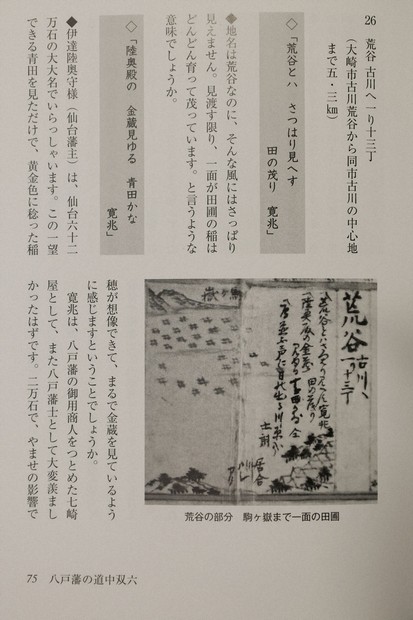 26 荒谷 古川へ一り十三丁
(大崎市古川荒谷から同市古川の中心地
まで五・三km)
◇「荒谷とハ さつはり見へす
田の茂り 寛兆」
◆地名は荒谷なのに、そんな風にはさっぱり
見えません。見渡す限り、一面が田圃の稲は
どんどん育って茂っています。と言うような
意味でしょうか。
◇「陸奥殿の 金蔵見ゆる 青田かな
寛兆」
◆伊達陸奥守様(仙台藩主)は、仙台六十二
万石の大大名でいらっしゃいます。この一望
できる青田を見ただけで、黄金色に稔った稲
荒谷
古川へ
一り十三丁
駒ヶ嶽
荒谷の部分 駒ヶ嶽まで一面の田圃
穂が想像できて、まるで金蔵を見ているよう
に感じますということでしょうか。
寛兆は、八戸藩の御用商人をつとめた七崎
屋として、また八戸藩士として大変羨まし
かったはずです。二万石で、やませの影響で
75 八戸藩の道中双六